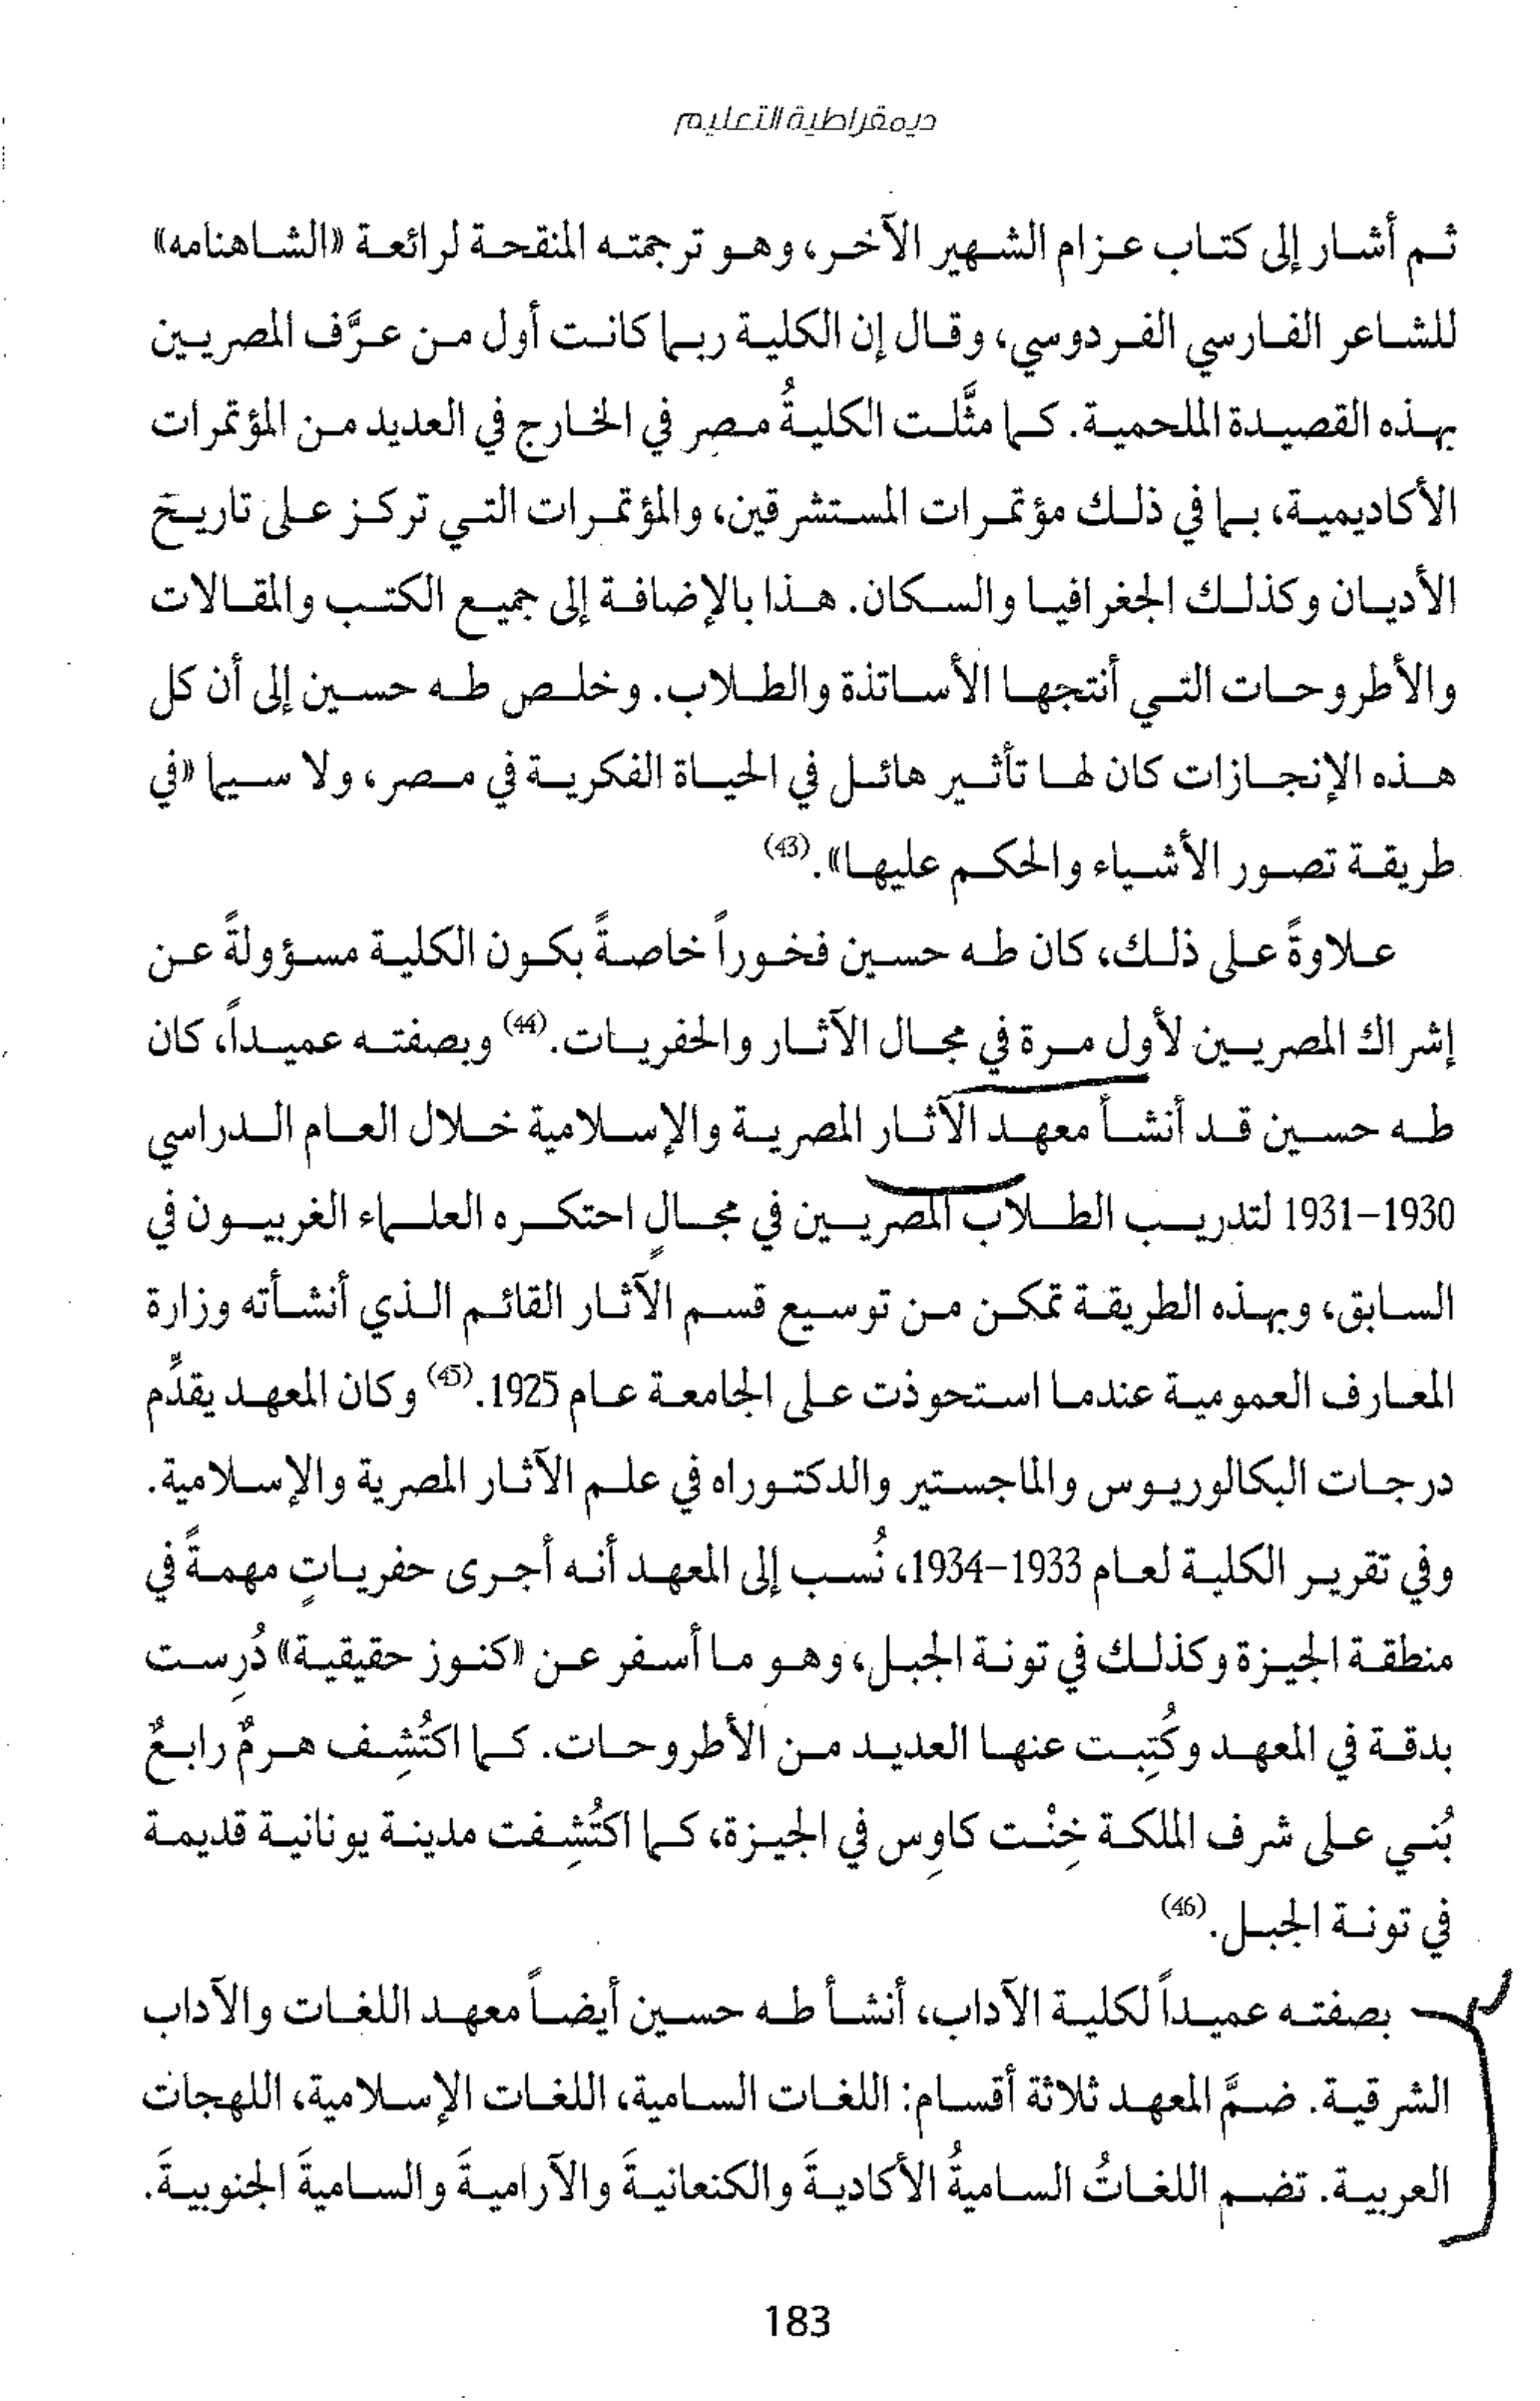 ديمقراطية التعليم
ثم أشار إلى كتاب عزام الشهير الآخر، وهو ترجمته المنقحة لرائعة «الشاهنامه»
للشاعر الفارسي الفردوسي، وقال إن الكلية ربما كانت أول من عرَّف المصريين
بهذه القصيدة الملحمية. كما مثَّلت الكليةُ مصر في الخارج في العديد من المؤتمرات
الأكاديمية، بما في ذلك مؤتمرات المستشرقين، والمؤتمرات التي تركز على تاريخ
الأديان وكذلك الجغرافيا والسكان. هذا بالإضافة إلى جميع الكتب والمقالات
والأطروحات التي أنتجها الأساتذة والطلاب. وخلص طه حسين إلى أن كل
هذه الإنجازات كان لها تأثير هائل في الحياة الفكرية في مصر، ولا سيما «في
طريقة تصور الأشياء والحكم عليها».(43)
علاوةً على ذلك، كان طه حسين فخوراً خاصةً بكون الكلية مسؤولةً عن
إشراك المصريين لأول مرة في مجال الآثار والحفريات.(44) وبصفته عميداً، كان
طه حسين قد أنشأ معهد الآثار المصرية والإسلامية خلال العام الدراسي
1930-1931 لتدريب الطلاب المصريين في مجالٍ احتكره العلماء الغربيون في
السابق، وبهذه الطريقة تمكن من توسيع قسم الآثار القائم الذي أنشأته وزارة
المعارف العمومية عندما استحوذت على الجامعة عام 1925.(45) وكان المعهد يقدِّم
درجات البكالوريوس والماجستير والدكتوراه في علم الآثار المصرية والإسلامية.
وفي تقرير الكلية لعام 1933-1934، نُسب إلى المعهد أنه أجرى حفرياتٍ مهمةً في
منطقة الجيزة وكذلك في تونة الجبل، وهو ما أسفر عن «كنوز حقيقية» دُرِست
بدقة في المعهد وكُتِبت عنها العديد من الأطروحات. كما اكتُشِف هرمٌ رابعٌ
بُني على شرف الملكة خِنْت كاوِس في الجيزة، كما اكتُشِفت مدينة يونانية قديمة
في تونة الجبل.(46)
بصفته عميداً لكلية الآداب، أنشأ طه حسين أيضاً معهد اللغات والآداب
الشرقية. ضمَّ المعهد ثلاثة أقسام: اللغات السامية، اللغات الإسلامية، اللهجات
العربية. تضم اللغاتُ الساميةُ الأكاديةَ والكنعانيةَ والآراميةَ والساميةَ الجنوبيةَ.
183